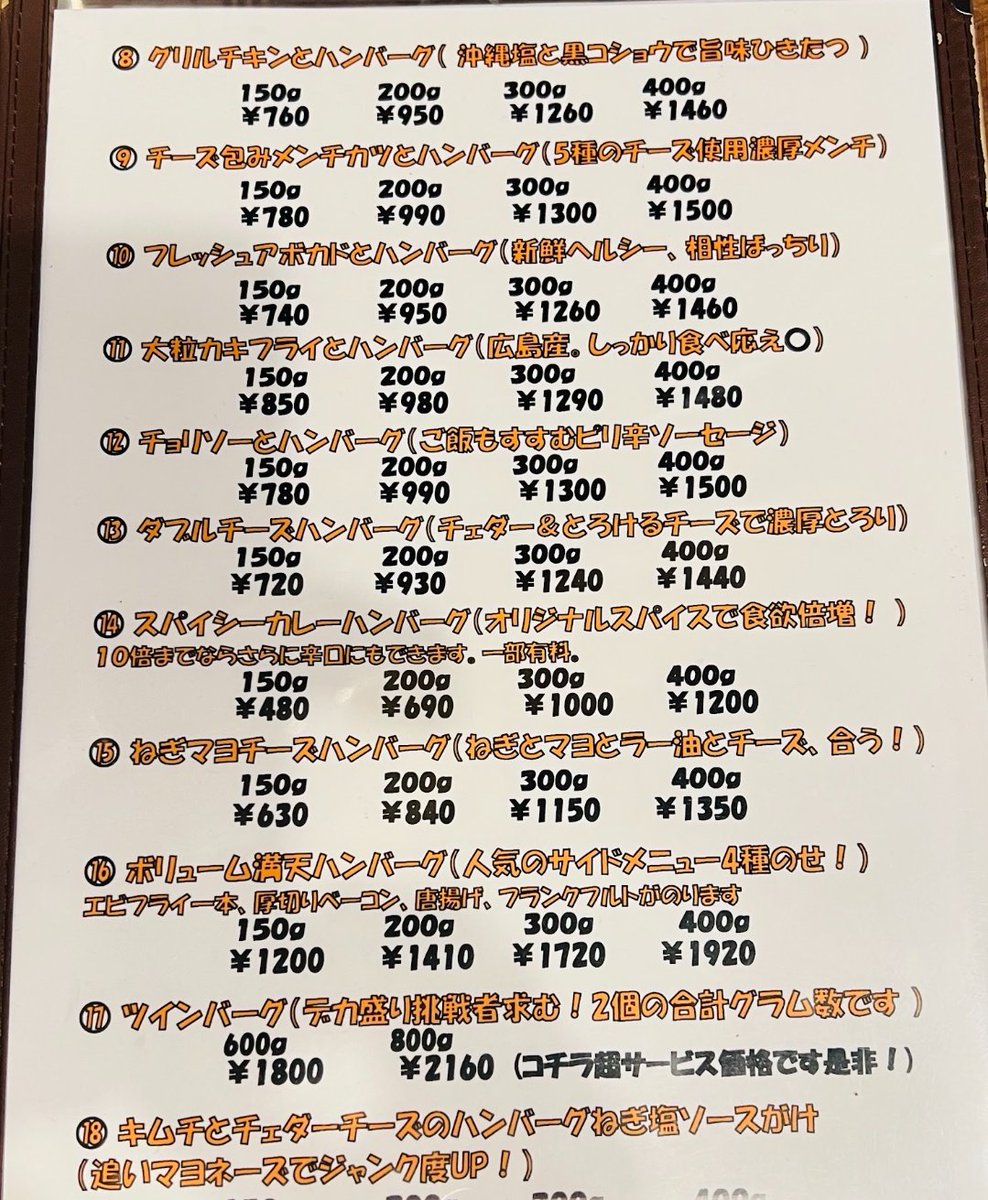 ⑧ グリルチキンとハンバーグ( 沖縄塩と黒コショウで旨味ひきたつ )
150g 200g 300g 400g
¥760 ¥950 ¥1260 ¥1460
⑨ チーズ包みメンチカツとハンバーグ(5種のチーズ使用濃厚メンチ)
150g 200g 300g 400g
¥780 ¥990 ¥1300 ¥1500
⑩ フレッシュアボカドとハンバーグ(新鮮ヘルシー、相性ばっちり)
150g 200g 300g 400g
¥740 ¥950 ¥1260 ¥1460
⑪ 大粒カキフライとハンバーグ(広島産。しっかり食べ応え〇)
150g 200g 300g 400g
¥850 ¥980 ¥1290 ¥1480
⑫ チョリソーとハンバーグ(ご飯もすすむピリ辛ソーセージ)
150g 200g 300g 400g
¥780 ¥990 ¥1300 ¥1500
⑬ ダブルチーズハンバーグ(チェダー&とろけるチーズで濃厚とろり)
150g 200g 300g 400g
¥720 ¥930 ¥1240 ¥1440
⑭ スパイシーカレーハンバーグ(オリジナルスパイスで食欲倍増! )
10倍までならさらに辛口にもできます。一部有料。
150g 200g 300g 400g
¥480 ¥690 ¥1000 ¥1200
⑮ ねぎマヨチーズハンバーグ(ねぎとマヨとラー油とチーズ、合う!)
150g 200g 300g 400g
¥630 ¥840 ¥1150 ¥1350
⑯ ボリューム満天ハンバーグ(人気のサイドメニュー4種のせ!)
エビフライ一本、厚切りベーコン、唐揚げ、フランクフルトがのります
150g 200g 300g 400g
¥1200 ¥1410 ¥1720 ¥1920
⑰ ツインバーグ(デカ盛り挑戦者求む!2個の合計グラム数です )
600g 800g
¥1800 ¥2160 (コチラ超サービス価格です是非!)
⑱ キムチとチェダーチーズのハンバーグねぎ塩ソースがけ
(追いマヨネーズでジャンク度UP!)
150g 200g 300g 400g